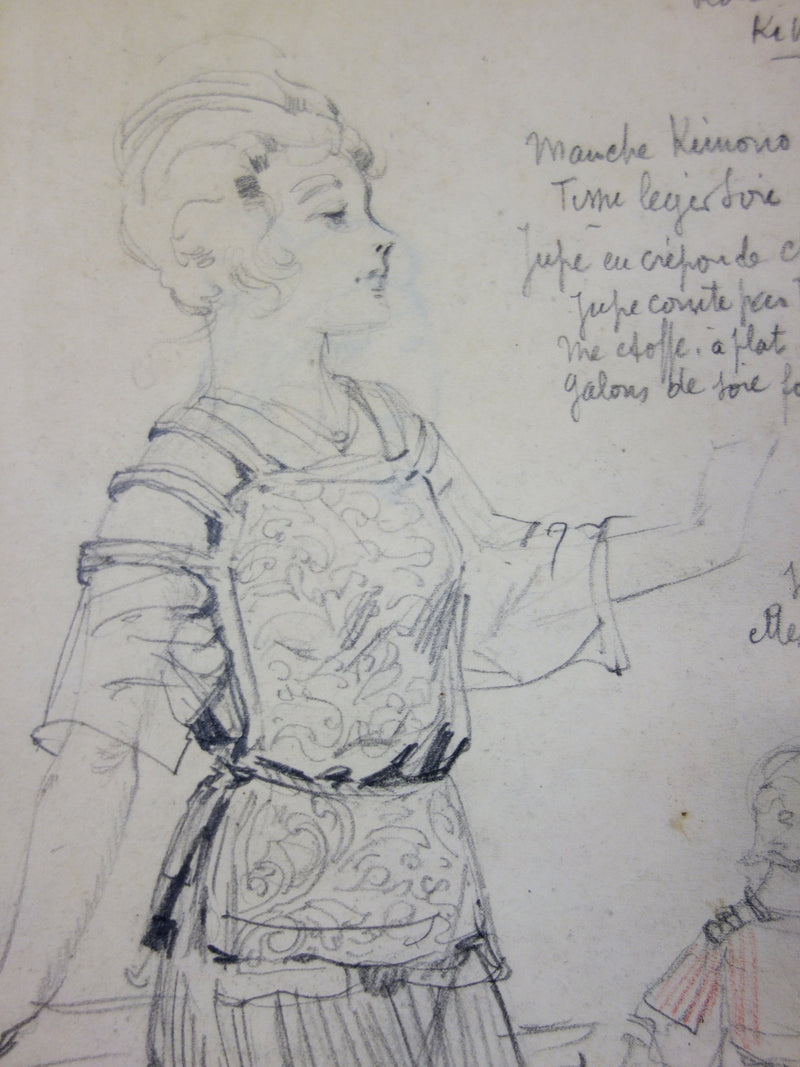 Ki
Manche Kimono
Tissu leger Soie
Jupe en crépon de c
Jupe courte
me etoffe. à plat
galons de soie fo